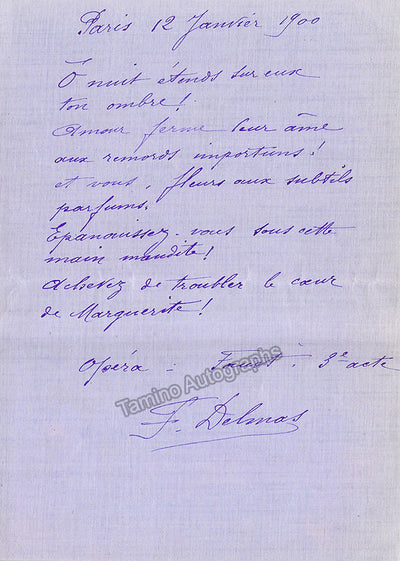 Paris 12 Janvier 1900
O nuit étends sur eux
ton ombre!
Amour ferme leur âme
aux remords importuns!
et vous, fleurs aux subtils
parfums,
Epanouissez-vous sous cette
main maudite!
Achevez de troubler le cœur
de Marguerite!
Opéra : Faust : 3e acte
Tamino Autographs
F. Delmas